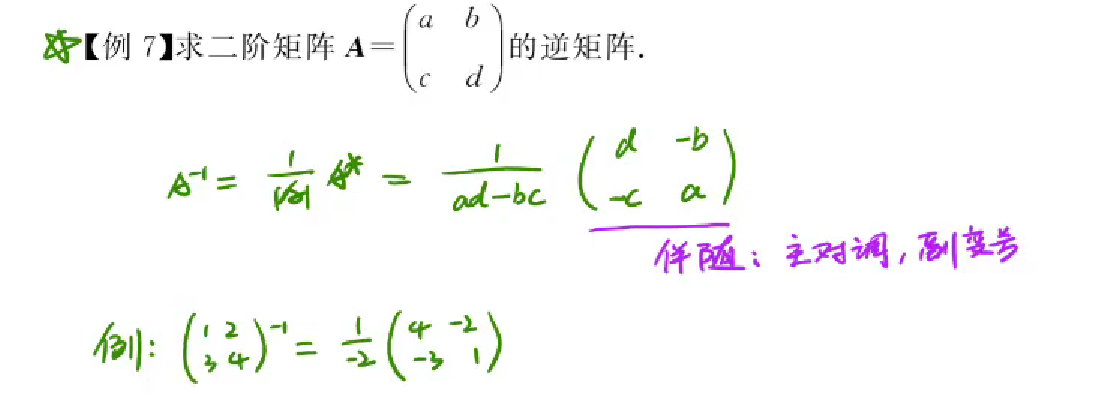 ☆【例 7】求二阶矩阵 A=(a b; c d)的逆矩阵.
A⁻¹ = 1/|A| A* = 1/(ad-bc) (d -b; -c a)
伴随：主对调，副变号
例：(1 2; 3 4)⁻¹ = 1/-2 (4 -2; -3 1)